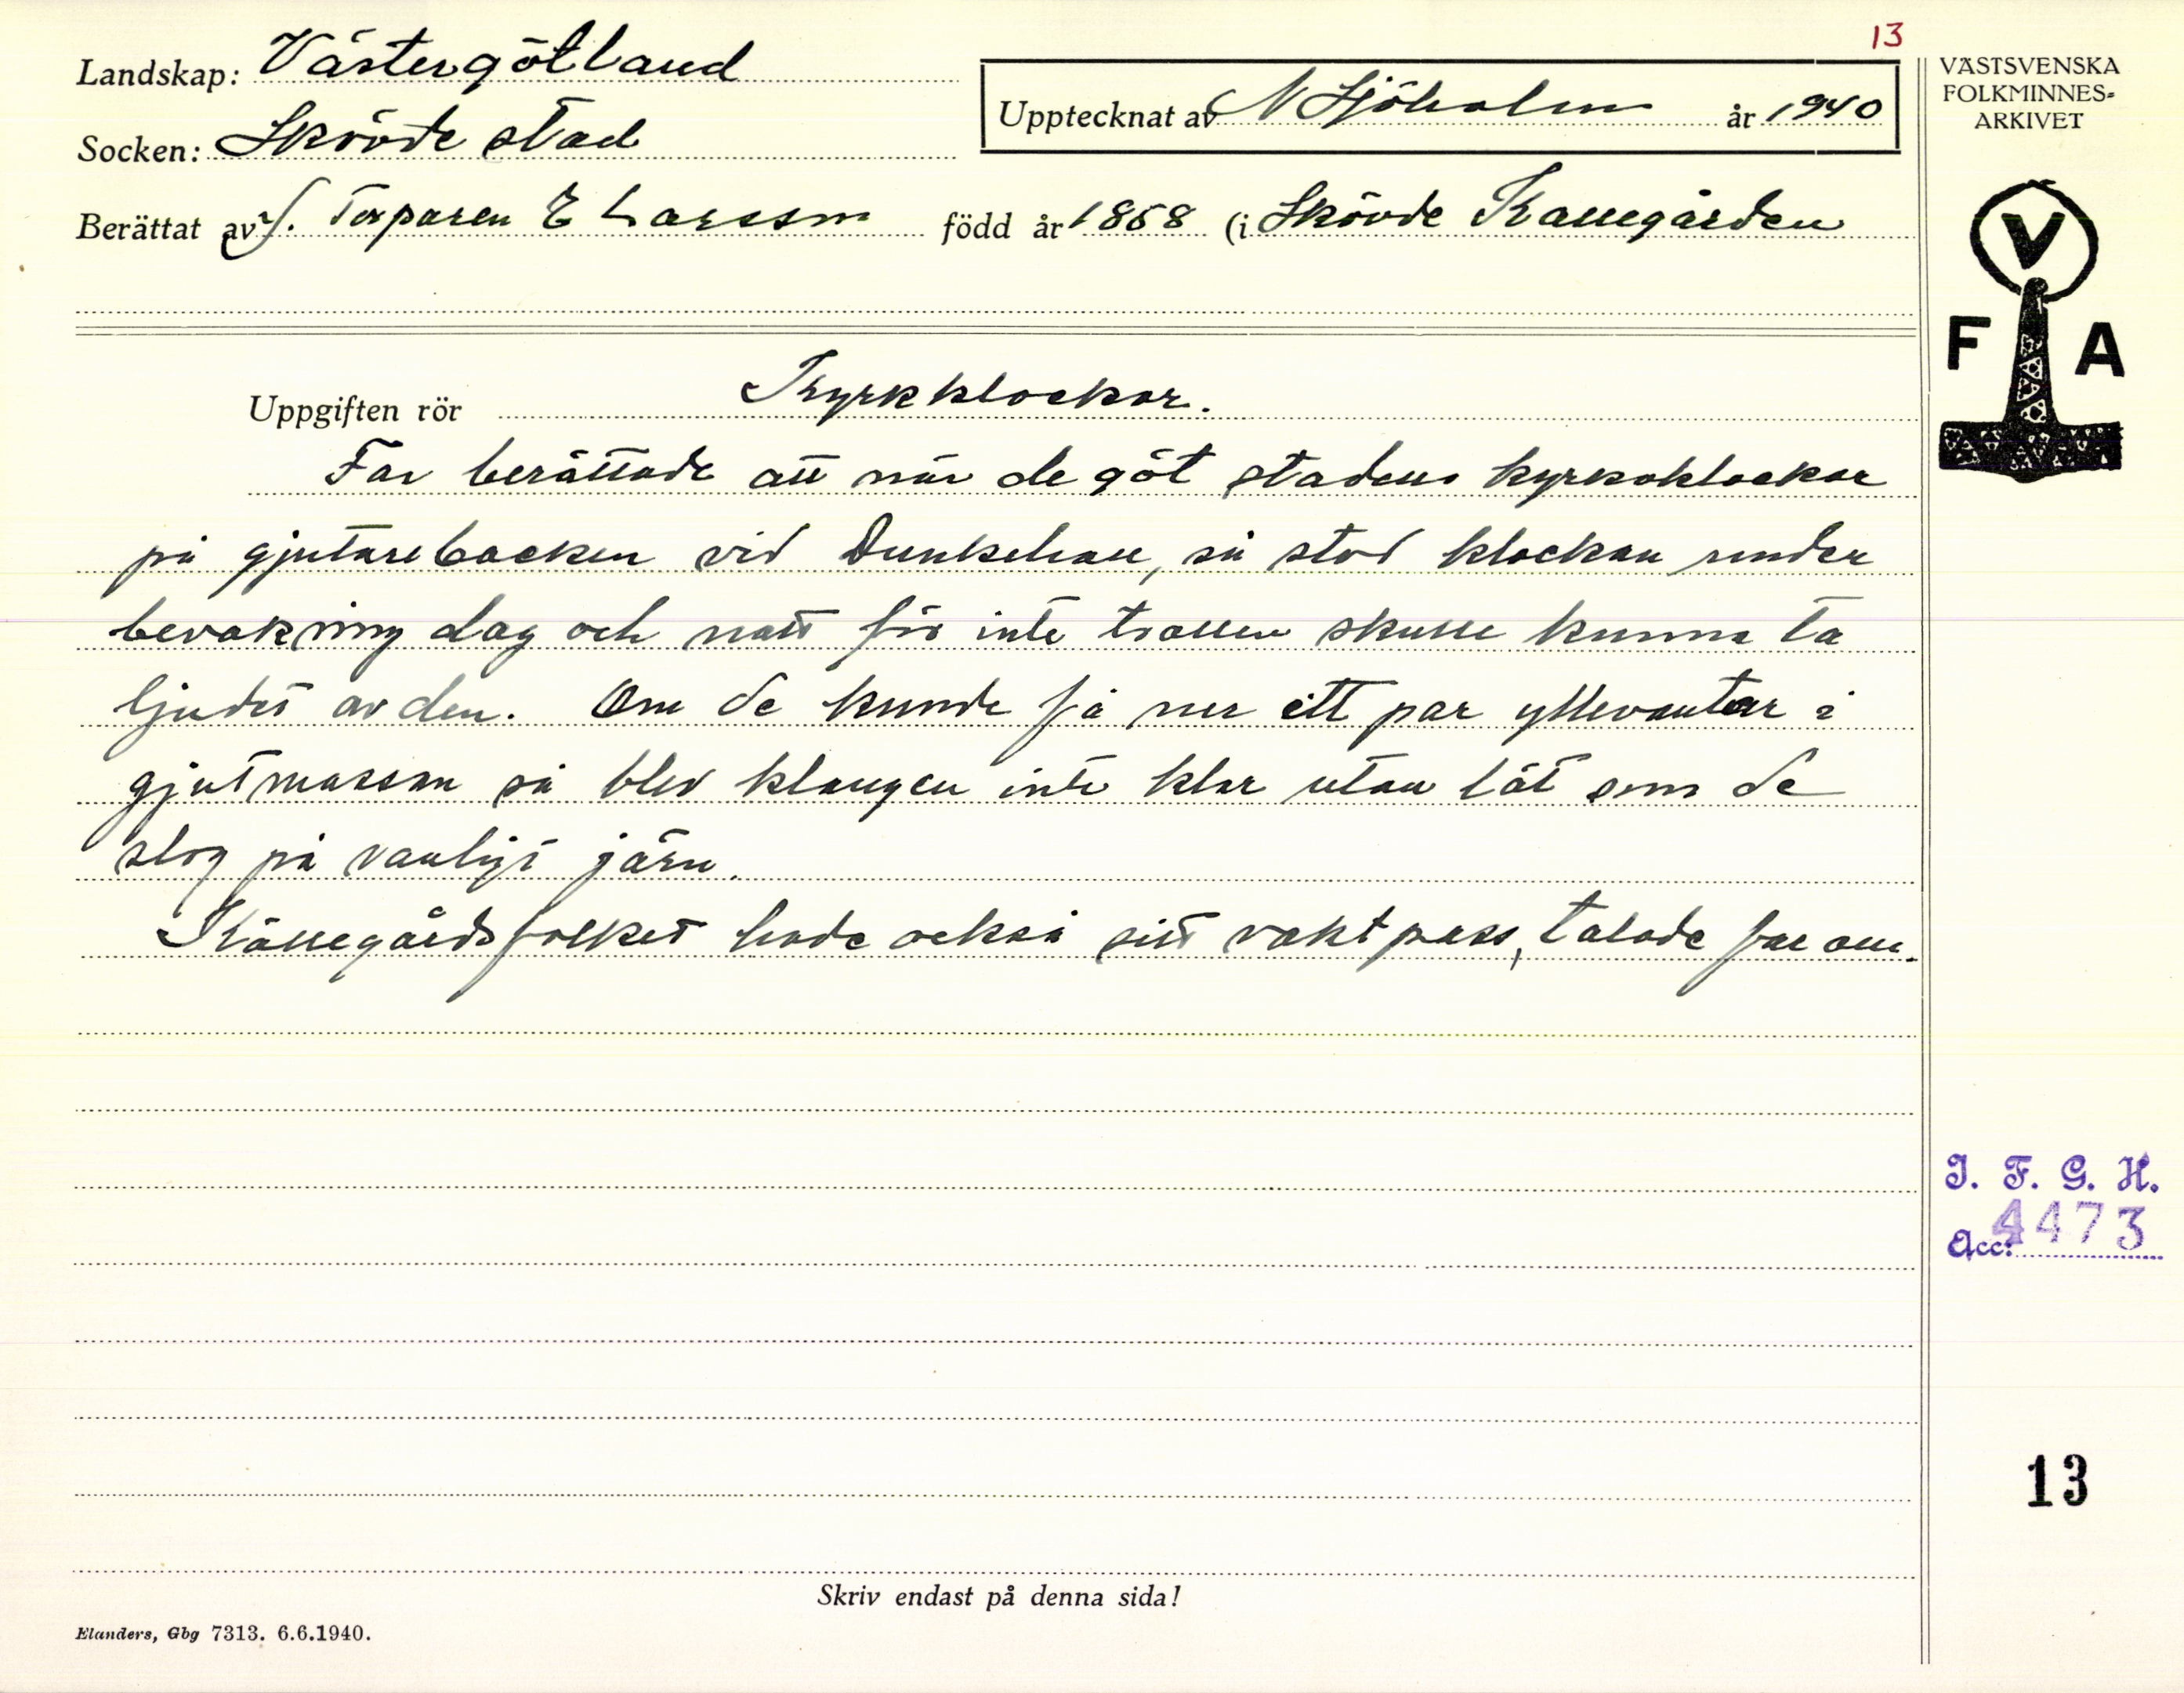 13
Landskap: Västergötland
Socken: Skövde stad
Upptecknat av N Sjöholm år 1940
Berättat av f. Torparen E Larsson född år 1858 (i Skövde Kållegården
VÄSTSVENSKA
FOLKMINNES-
ARKIVET
V
F A
Uppgiften rör Kyrkklockor.
Far berättade att när de göt stadens kyrkoklockor
på gjutarebacken vid Dunkehall, så stod klockan under
bevakning dag och natt för inte trollen skulle kunna ta
ljudet av den. Om de kunde få ner ett par yllevantar i
gjutmassan så blev klangen inte klar utan lät som de
slog på vanligt järn.
Kållegårdsfolket hade också sitt vaktpass, talade far om.
I. F. G. H.
Acc: 4473
13
Skriv endast på denna sida!
Elanders, Gbg 7313. 6.6.1940.